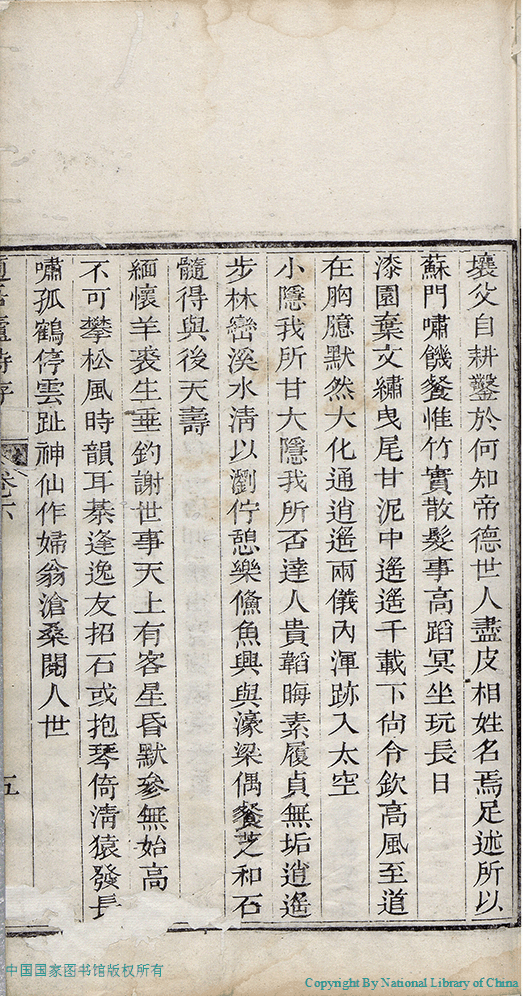 壤父自耕鑿於何知帝德世人盡皮相姓名焉足述所以
蘇門嘯饑餐惟竹實散髮事高蹈冥坐玩長日
漆園棄文繡曳尾甘泥中遙遙千載下尙令欽高風至道
在胸臆默然大化通逍遙兩儀內渾跡入太空
小隱我所甘大隱我所否達人貴韜晦素履貞無垢逍遙
步林巒溪水清以瀏佇憩樂儵魚興與濠梁偶餐芝和石
髓得與後天壽
緬懷羊裘生垂釣謝世事天上有客星昏默參無始高
不可攀松風時韻耳棊逢逸友招石或抱琴倚清猿發長
嘯孤鶴停雲趾神仙作婦翁滄桑閱人世
卷六
五
中国国家图书馆版权所有
Copyright By National Library of China